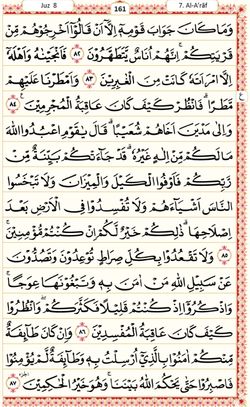 Juz 8 161 7. Al-A'râf
وَمَا كَانَ جَوَابَ قَوْمِهٖٓ اِلَّآ اَنْ قَالُوْٓا اَخْرِجُوْهُمْ مِّنْ
قَرْيَتِكُمْۚ اِنَّهُمْ اُنَاسٌ يَّتَطَهَّرُوْنَ ٨٢ فَاَنْجَيْنٰهُ وَاَهْلَهٗٓ
اِلَّا امْرَاَتَهٗ كَانَتْ مِنَ الْغٰبِرِيْنَ ٨٣ وَاَمْطَرْنَا عَلَيْهِمْ
مَّطَرًاۗ فَانْظُرْ كَيْفَ كَانَ عَاقِبَةُ الْمُجْرِمِيْنَ ࣖ ٨٤
وَاِلٰى مَدْيَنَ اَخَاهُمْ شُعَيْبًاۗ قَالَ يٰقَوْمِ اعْبُدُوا اللّٰهَ
مَا لَكُمْ مِّنْ اِلٰهٍ غَيْرُهٗۗ قَدْ جَاۤءَتْكُمْ بَيِّنَةٌ مِّنْ
رَّبِّكُمْ فَاَوْفُوا الْكَيْلَ وَالْمِيْزَانَ وَلَا تَبْخَسُوا
النَّاسَ اَشْيَاۤءَهُمْ وَلَا تُفْسِدُوْا فِى الْاَرْضِ بَعْدَ
اِصْلَاحِهَاۗ ذٰلِكُمْ خَيْرٌ لَّكُمْ اِنْ كُنْتُمْ مُّؤْمِنِيْنَۚ
٨٥ وَلَا تَقْعُدُوْا بِكُلِّ صِرَاطٍ تُوْعِدُوْنَ وَتَصُدُّوْنَ
عَنْ سَبِيْلِ اللّٰهِ مَنْ اٰمَنَ بِهٖ وَتَبْغُوْنَهَا عِوَجًاۚ
وَاذْكُرُوْٓا اِذْ كُنْتُمْ قَلِيْلًا فَكَثَّرَكُمْۖ وَانْظُرُوْا
كَيْفَ كَانَ عَاقِبَةُ الْمُفْسِدِيْنَ ٨٦ وَاِنْ كَانَ طَاۤىِٕفَةٌ
مِّنْكُمْ اٰمَنُوْا بِالَّذِيْٓ اُرْسِلْتُ بِهٖ وَطَاۤىِٕفَةٌ لَّمْ يُؤْمِنُوْا
فَاصْبِرُوْا حَتّٰى يَحْكُمَ اللّٰهُ بَيْنَنَاۚ وَهُوَ خَيْرُ الْحٰكِمِيْنَ ٨٧